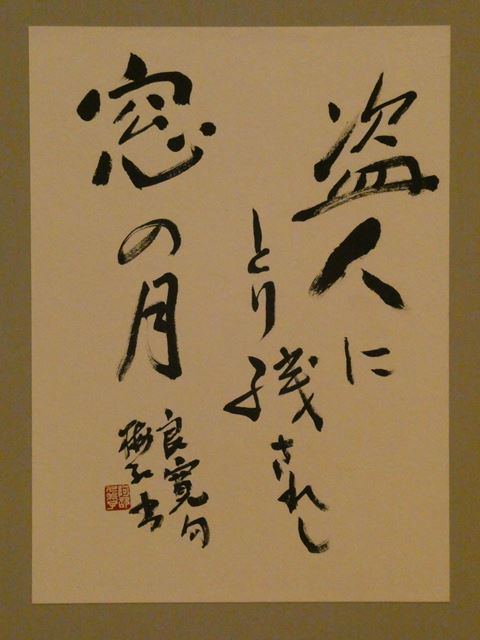 盗人に
とり残されし
窓の月
良寛句
書